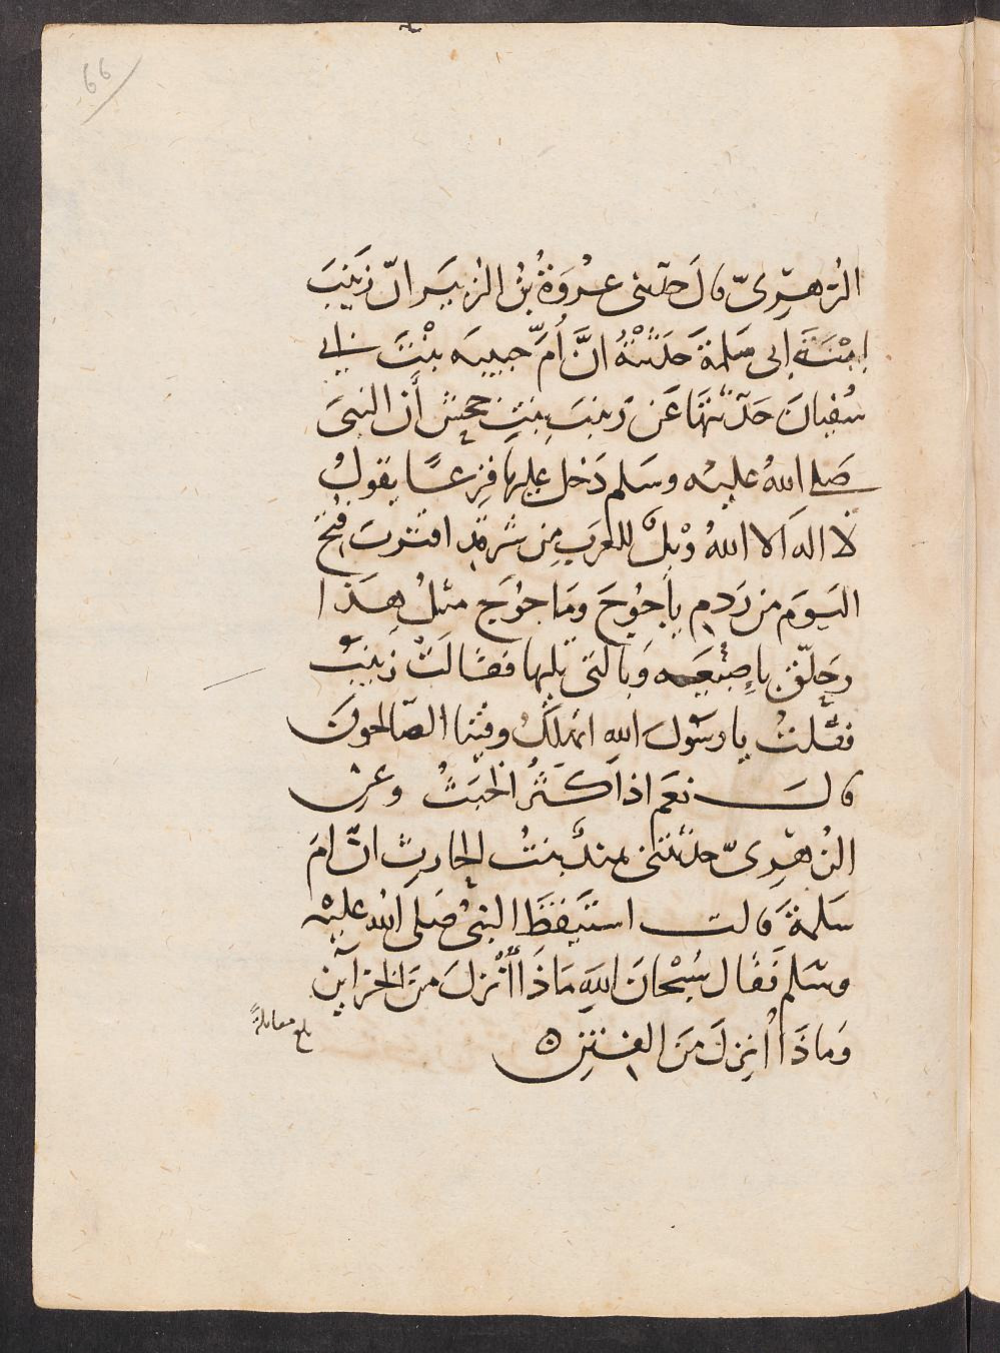 66
الزُهرِيّ قالَ حدّثنى عُرْوَةُ بنُ الزُبيَر انّ زَينبَ
ابْنَةَ ابى سَلمةَ حَدّثَتْهُ انَّ اُمَّ حبيبه بنْتَ ابى
سُفيانَ حَدّثتهَا عَن زينبَ بنتِ جحشٍ أَن النبىَ
صَلى اللهُ عليْه وسَلم دَخل عليها فزِعًا يقولُ
لا اله الا اللهُ ويْلٌ للعرَبِ مِن شرٍ قدِ اقترَبَ فُتحَ
اليَومَ من رَدمِ يأجُوجَ ومَاجُوجَ مثلُ هذَا
وحَلّق باِصْبَعِه وَبالتى تليها فقالَتْ زينبُ
فقُلتُ يا رسُولَ اللهِ انهلَكُ وفيْنا الصّالحونَ
قالَ نعَم اذا كثُرَ الخبَثُ وعنِ
الزُهرِىّ حدثتنى هندُ بنتُ الحارثِ انّ امَ
سَلمةَ قالت استيقظَ النبىُ صَلى الله عليْه
وسَلم فَقال سُبْحانَ اللهِ مَاذَا أُنْزلَ منَ الخزآينِ
وَماذَا اُنزِلَ منَ الفتَنِ ه
بلغ مقابلةً